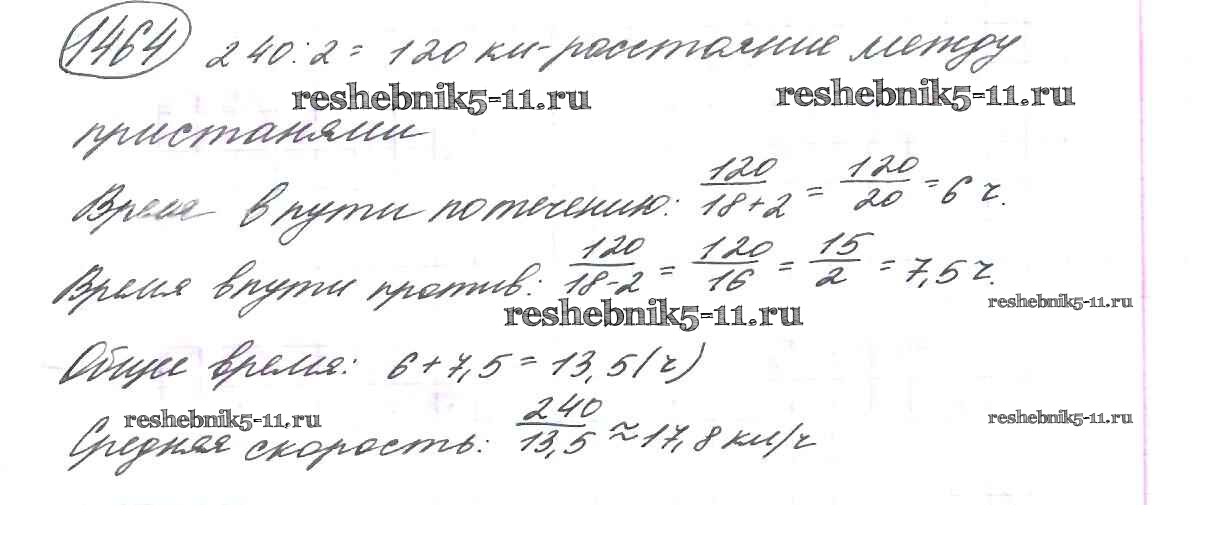 1464 240:2= 120 км-расстояние между
reshebnik5-11.ru reshebnik5-11.ru
пристанями
Время в пути по течению: 120/18+2 = 120/20 = 6 ч.
Время в пути против: 120/18-2 = 120/16 = 15/2 = 7,5 ч.
reshebnik5-11.ru reshebnik5-11.ru
Общее время: 6+7,5=13,5(ч)
reshebnik5-11.ru reshebnik5-11.ru
Средняя скорость: 240/13,5 ≈ 17,8 км/ч